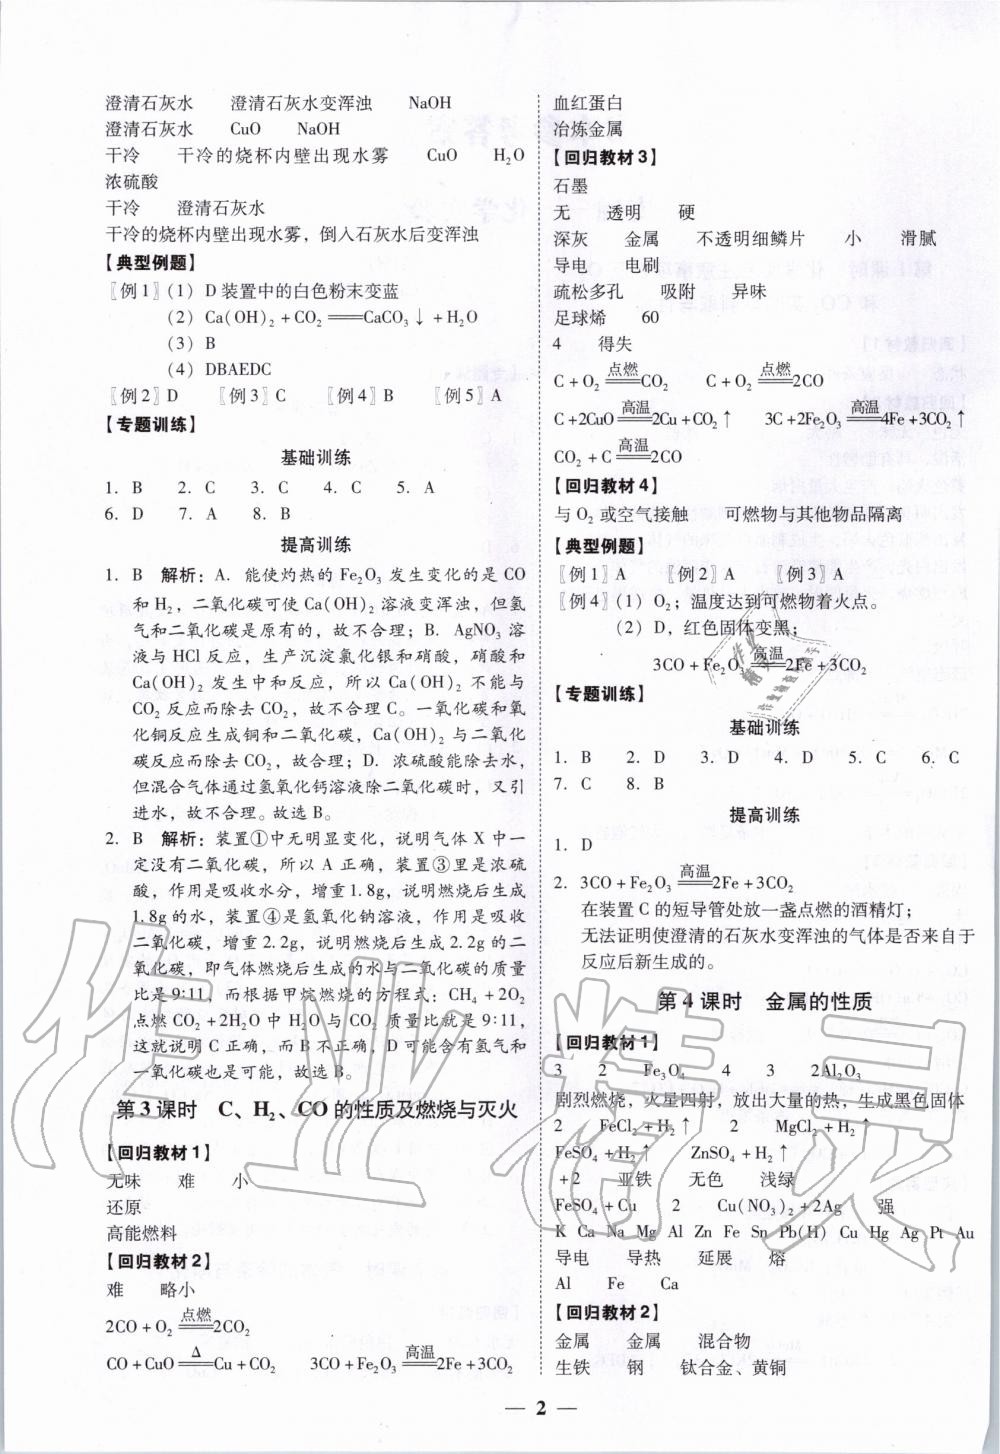 澄清石灰水　澄清石灰水变浑浊　NaOH
澄清石灰水　CuO　NaOH
干冷　干冷的烧杯内壁出现水雾　CuO　H₂O
浓硫酸
干冷　澄清石灰水
干冷的烧杯内壁出现水雾，倒入石灰水后变浑浊
【典型例题】
〖例1〗(1) D装置中的白色粉末变蓝
(2) Ca(OH)₂+CO₂══CaCO₃↓+H₂O
(3) B
(4) DBAEDC
〖例2〗D　〖例3〗C　〖例4〗B　〖例5〗A
【专题训练】
基础训练
1. B　2. C　3. C　4. C　5. A
6. D　7. A　8. B
提高训练
1. B　解析：A. 能使灼热的Fe₂O₃发生变化的是CO
和H₂，二氧化碳可使Ca(OH)₂溶液变浑浊，但氢
气和二氧化碳是原有的，故不合理；B. AgNO₃溶
液与HCl反应，生产沉淀氯化银和硝酸，硝酸和
Ca(OH)₂发生中和反应，所以Ca(OH)₂不能与
CO₂反应而除去CO₂，故不合理C。一氧化碳和氧
化铜反应生成铜和二氧化碳，Ca(OH)₂与二氧化
碳反应而除去CO₂，故合理；D. 浓硫酸能除去水，
但混合气体通过氢氧化钙溶液除二氧化碳时，又引
进水，故不合理。故选B。
2. B　解析：装置①中无明显变化，说明气体X中一
定没有二氧化碳，所以A正确，装置③里是浓硫
酸，作用是吸收水分，增重1.8g，说明燃烧后生成
1.8g的水，装置④是氢氧化钠溶液，作用是吸收
二氧化碳，增重2.2g，说明燃烧后生成2.2g的二
氧化碳，即气体燃烧后生成的水与二氧化碳的质量
比是9:11，而根据甲烷燃烧的方程式：CH₄+2O₂
点燃CO₂+2H₂O中H₂O与CO₂质量比就是9:11，
这就说明C正确，而B不正确，D可能含有氢气和
一氧化碳也是可能，故选B。
第3课时　C、H₂、CO的性质及燃烧与灭火
【回归教材1】
无味　难　小
还原
高能燃料
【回归教材2】
难　略小
2CO+O₂ 点燃══ 2CO₂
CO+CuO △══ Cu+CO₂　3CO+Fe₂O₃ 高温══ 2Fe+3CO₂
血红蛋白
冶炼金属
【回归教材3】
石墨
无　透明　硬
深灰　金属　不透明细鳞片　小　滑腻
导电　电刷
疏松多孔　吸附　异味
足球烯　60
4　得失
C+O₂ 点燃══ CO₂　C+O₂ 点燃══ 2CO
C+2CuO 高温══ 2Cu+CO₂↑　3C+2Fe₂O₃ 高温══ 4Fe+3CO₂↑
CO₂+C 高温══ 2CO
【回归教材4】
与O₂或空气接触　可燃物与其他物品隔离
【典型例题】
〖例1〗A　〖例2〗A　〖例3〗A
〖例4〗(1) O₂；温度达到可燃物着火点。
(2) D，红色固体变黑；
3CO+Fe₂O₃ 高温══ 2Fe+3CO₂
【专题训练】
基础训练
1. B　2. D　3. D　4. D　5. C　6. C
7. C　8. B
提高训练
1. D
2. 3CO+Fe₂O₃ 高温══ 2Fe+3CO₂
在装置C的短导管处放一盏点燃的酒精灯；
无法证明使澄清的石灰水变浑浊的气体是否来自于
反应后新生成的。
第4课时　金属的性质
【回归教材1】
3　2　Fe₃O₄　4　3　2Al₂O₃
剧烈燃烧，火星四射，放出大量的热，生成黑色固体
2　FeCl₂+H₂↑　2　MgCl₂+H₂↑
FeSO₄+H₂↑　ZnSO₄+H₂↑
+2　亚铁　无色　浅绿
FeSO₄+Cu　2　Cu(NO₃)₂+2Ag　强
K Ca Na Mg Al Zn Fe Sn Pb(H) Cu Hg Ag Pt Au
导电　导热　延展　熔
Al　Fe　Ca
【回归教材2】
金属　金属　混合物
生铁　钢　钛合金、黄铜
— 2 —
作业精灵